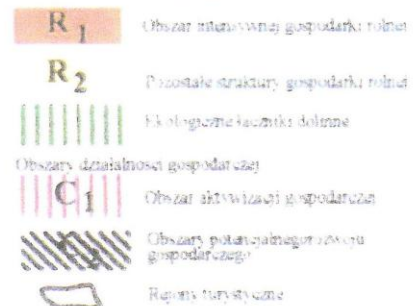 R1 Obszar intensywnej gospodarki rolnej
R2 Pozostałe struktury gospodarki rolnej
Ekologiczne łączniki dolinne
Obszary działalności gospodarczej
C1 Obszar aktywizacji gospodarczej
Obszary potencjalnego rozwoju
gospodarczego
Rejony turystyczne